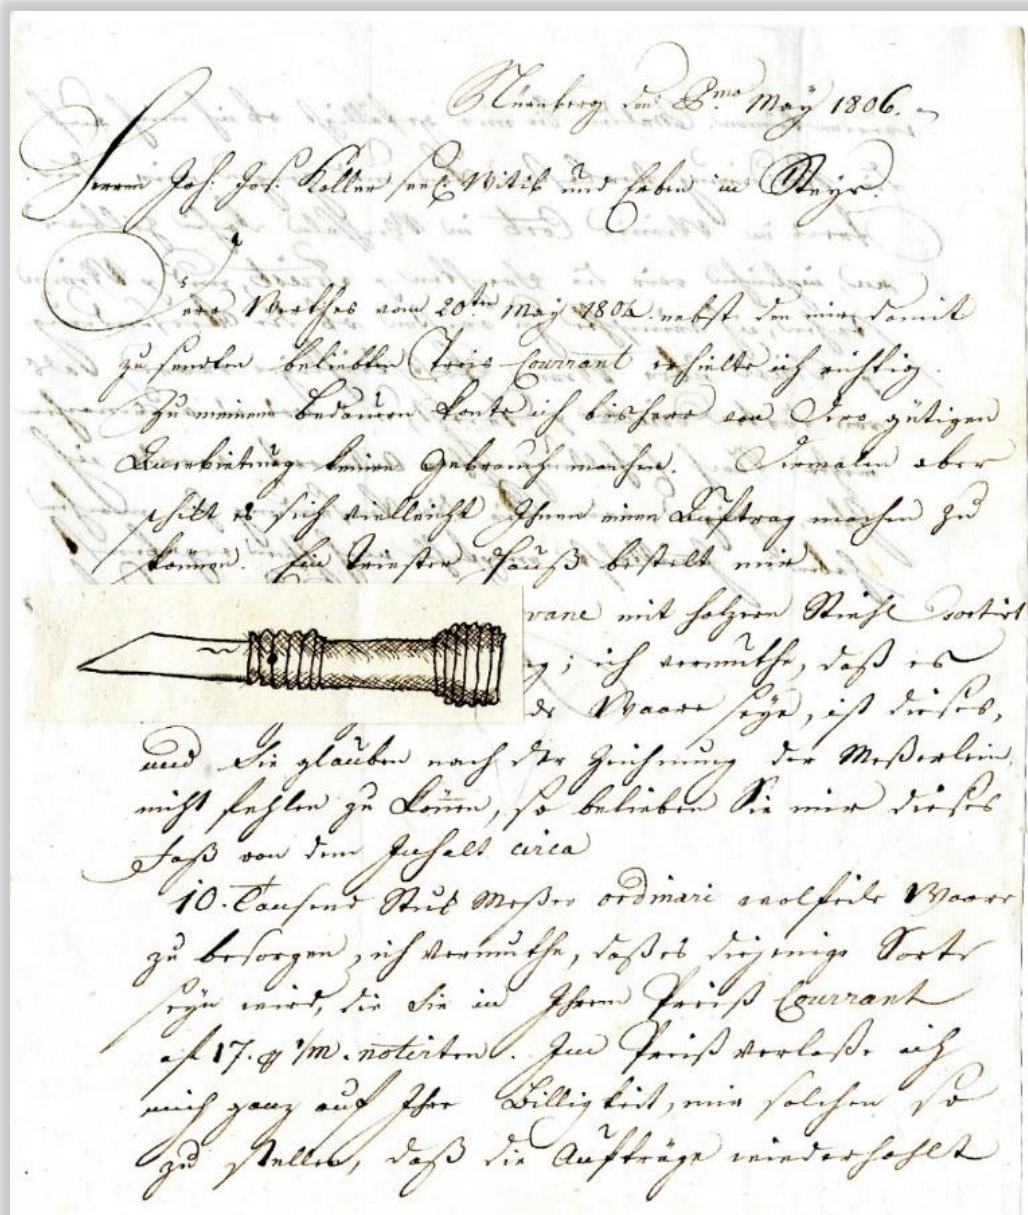 Nürnberg den 8mo May 1806.
Herren Joh. Jos. Koller seel. Witib und Erben in Steyr.
Dero Werthes vom 20ten May 1804. nebst den mir damit
zu senden beliebten Preis Courrant erhielte ich richtig.
Zu meinem Bedauren konte ich bishero von Dero gütigen
Anerbietung keinen Gebrauch machen. Dermalen aber
schikt es sich vielleicht Ihnen einen Auftrag machen zu
können. Ein Triester Hauß bestelt mir
mit holzern Stiehl sortirt
ich vermuthe, daß es
Waare seye, ist dieses,
und Sie glauben nach der Zeichnung der Meßerlein,
nicht fehlen zu können, so belieben Sie mir dieses
Faß von dem Inhalt circa
10. Tausend Stük Meßer ordinari wolfeile Waare
zu besorgen, ich vermuthe, daß es diejenige Sorte
seyn wird, die Sie in Ihrem Preiß Courrant
af 17. notirten. Im Preiß verlaße ich
mich ganz auf Ihre Billigkeit, mir solchen so
zu stellen, daß die Aufträge wiederhohlt